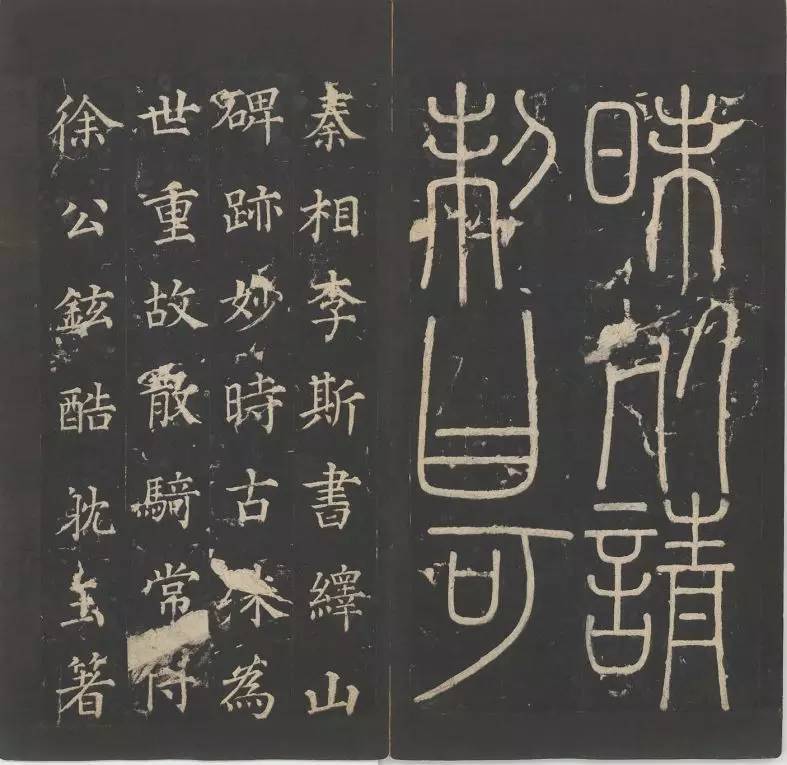 昧死請
制曰可
秦相李斯書繹山
碑跡妙時古殊為
世重故散騎常侍
徐公鉉酷耽玉箸